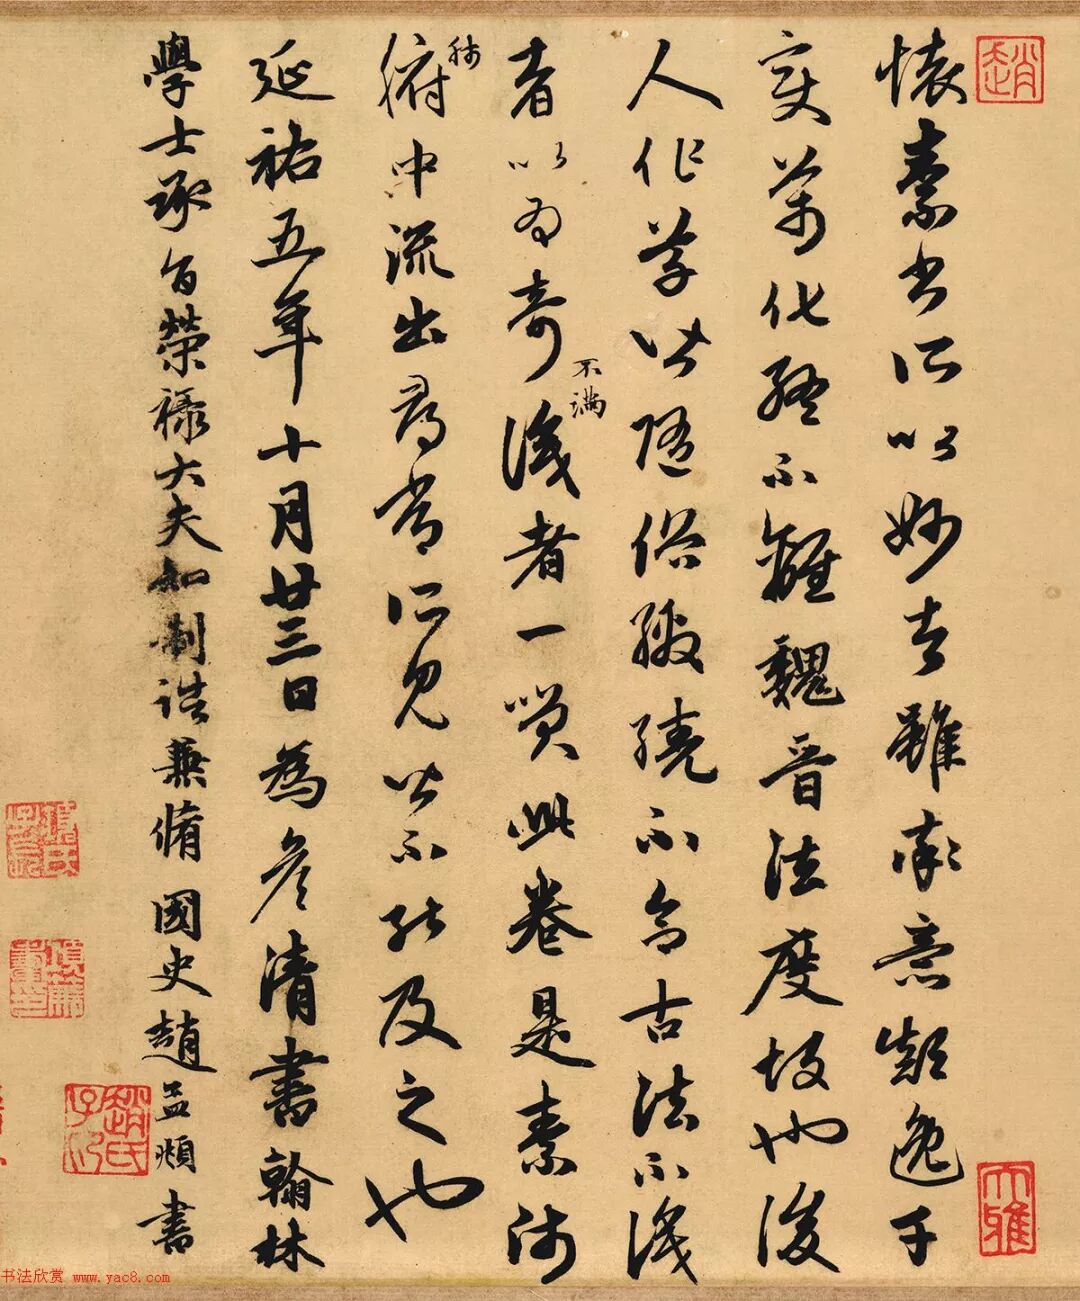 懷素書所以妙者雖率意顛逸千
變萬化終不離魏晉法度故也後
人作草皆隨俗繳繞不合古法不識
者以為奇不滿識者一笑此卷是素師
肺腑中流出尋常所見皆不能及之也
延祐五年十月廿三日為彥清書翰林
學士承旨榮祿大夫知制誥兼脩國史趙孟頫書
趙
大雅
趙氏子昂
书法欣赏 www.yac8.com